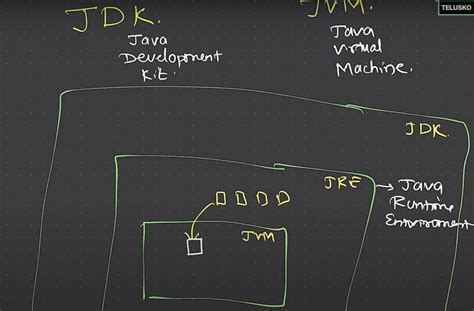 TELUSKO
JDK.
Java
Development
Kit.
JVM.
Java
Virtual
Machine.
JDK.
JRE
Java
Runtime
Environment
JVM